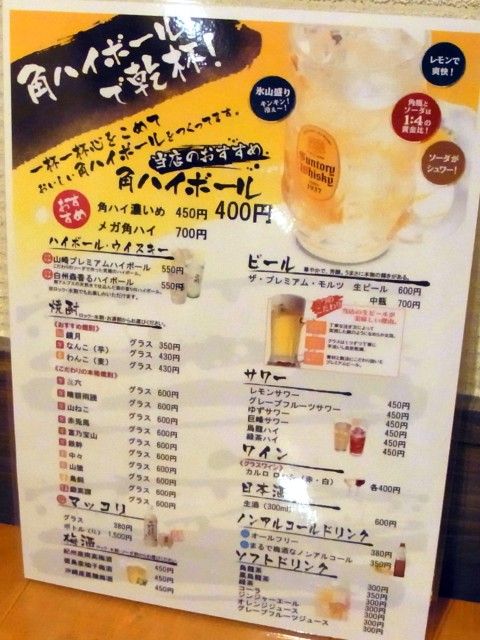 角ハイボール
で乾杯!
一杯一杯心をこめて
おいしい角ハイボールをつくってます。
当店のおすすめ
角ハイボール 400円
おすすめ
角ハイ濃いめ 450円
メガ角ハイ 700円
氷山盛り
キンキン!
冷えー!
レモンで
爽快!
角瓶と
ソーダは
1:4の
黄金比!
ソーダが
シュワー!
Suntory
Whisky
1937
ハイボール・ウイスキー
山崎プレミアムハイボール 550円
白州森香るハイボール 550円
焼酎
ロック・水割・お湯割からお選びください。
《おすすめ焼酎》
鏡月 グラス 350円
なんこ(芋) グラス 430円
わんこ(麦) グラス 430円
《こだわりの本格焼酎》
三六 グラス 600円
グラス 600円
山ねこ グラス 600円
赤兎馬 グラス 600円
富乃宝山 グラス 600円
グラス 600円
中々 グラス 600円
山猿 グラス 600円
鳥飼 グラス 600円
グラス 600円
マッコリ
グラス 380円
ボトル(1L) 1,500円
梅酒
450円
450円
450円
ビール
ザ・プレミアム・モルツ 生ビール 600円
中瓶 700円
当店の生ビールが
美味しい理由。
サワー
レモンサワー 450円
グレープフルーツサワー 450円
ゆずサワー 450円
巨峰サワー 450円
烏龍ハイ 450円
緑茶ハイ 450円
ワイン
《グラスワイン》
カルロ ロッシ(赤・白) 各400円
日本酒
生酒(300ml) 600円
ノンアルコールドリンク
オールフリー 380円
まるで梅酒なノンアルコール 350円
ソフトドリンク
烏龍茶 300円
黒烏龍茶 350円
緑茶 300円
コーラ 300円
ジンジャーエール 300円
オレンジジュース 300円
グレープフルーツジュース 300円